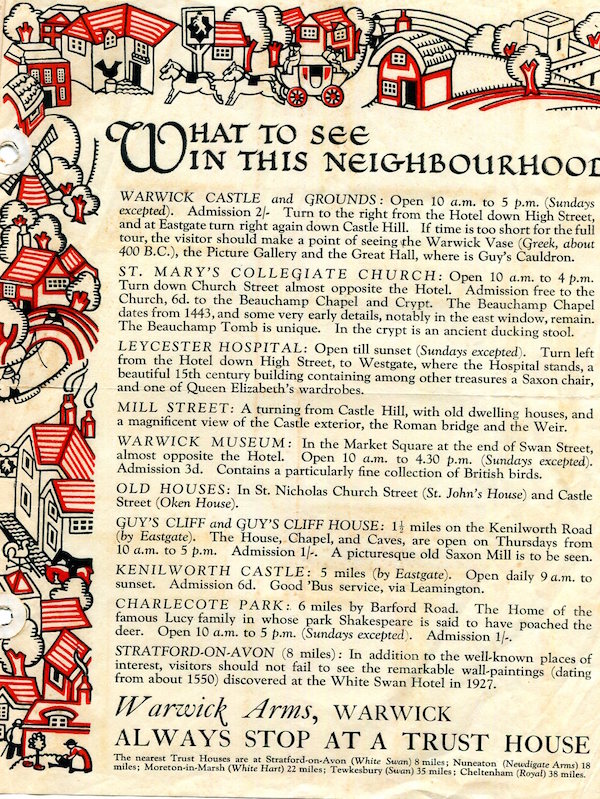 WHAT TO SEE
IN THIS NEIGHBOURHOOD
WARWICK CASTLE and GROUNDS: Open 10 a.m. to 5 p.m. (Sundays
excepted). Admission 2/- Turn to the right from the Hotel down High Street,
and at Eastgate turn right again down Castle Hill. If time is too short for the full
tour, the visitor should make a point of seeing the Warwick Vase (Greek, about
400 B.C.), the Picture Gallery and the Great Hall, where is Guy's Cauldron.
ST. MARY'S COLLEGIATE CHURCH: Open 10 a.m. to 4 p.m.
Turn down Church Street almost opposite the Hotel. Admission free to the
Church, 6d. to the Beauchamp Chapel and Crypt. The Beauchamp Chapel
dates from 1443, and some very early details, notably in the east window, remain.
The Beauchamp Tomb is unique. In the crypt is an ancient ducking stool.
LEYCESTER HOSPITAL: Open till sunset (Sundays excepted). Turn left
from the Hotel down High Street, to Westgate, where the Hospital stands, a
beautiful 15th century building containing among other treasures a Saxon chair,
and one of Queen Elizabeth's wardrobes.
MILL STREET: A turning from Castle Hill, with old dwelling houses, and
a magnificent view of the Castle exterior, the Roman bridge and the Weir.
WARWICK MUSEUM: In the Market Square at the end of Swan Street,
almost opposite the Hotel. Open 10 a.m. to 4.30 p.m. (Sundays excepted).
Admission 3d. Contains a particularly fine collection of British birds.
OLD HOUSES: In St. Nicholas Church Street (St. John's House) and Castle
Street (Oken House).
GUY'S CLIFF and GUY'S CLIFF HOUSE: 1½ miles on the Kenilworth Road
(by Eastgate). The House, Chapel, and Caves, are open on Thursdays from
10 a.m. to 5 p.m. Admission 1/-. A picturesque old Saxon Mill is to be seen.
KENILWORTH CASTLE: 5 miles (by Eastgate). Open daily 9 a.m. to
sunset. Admission 6d. Good 'Bus service, via Leamington.
CHARLECOTE PARK: 6 miles by Barford Road. The Home of the
famous Lucy family in whose park Shakespeare is said to have poached the
deer. Open 10 a.m. to 5 p.m. (Sundays excepted). Admission 1/-.
STRATFORD-ON-AVON (8 miles): In addition to the well-known places of
interest, visitors should not fail to see the remarkable wall-paintings (dating
from about 1550) discovered at the White Swan Hotel in 1927.
Warwick Arms, WARWICK
ALWAYS STOP AT A TRUST HOUSE
The nearest Trust Houses are at Stratford-on-Avon (White Swan) 8 miles; Nuneaton (Newdigate Arms) 18
miles; Moreton-in-Marsh (White Hart) 22 miles; Tewkesbury (Swan) 35 miles; Cheltenham (Royal) 38 miles.